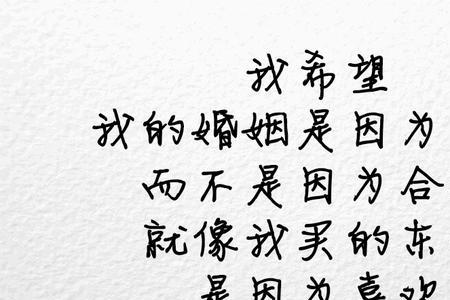 我希望
我的婚姻是因为
而不是因为合
就像我买的东
是因为喜欢